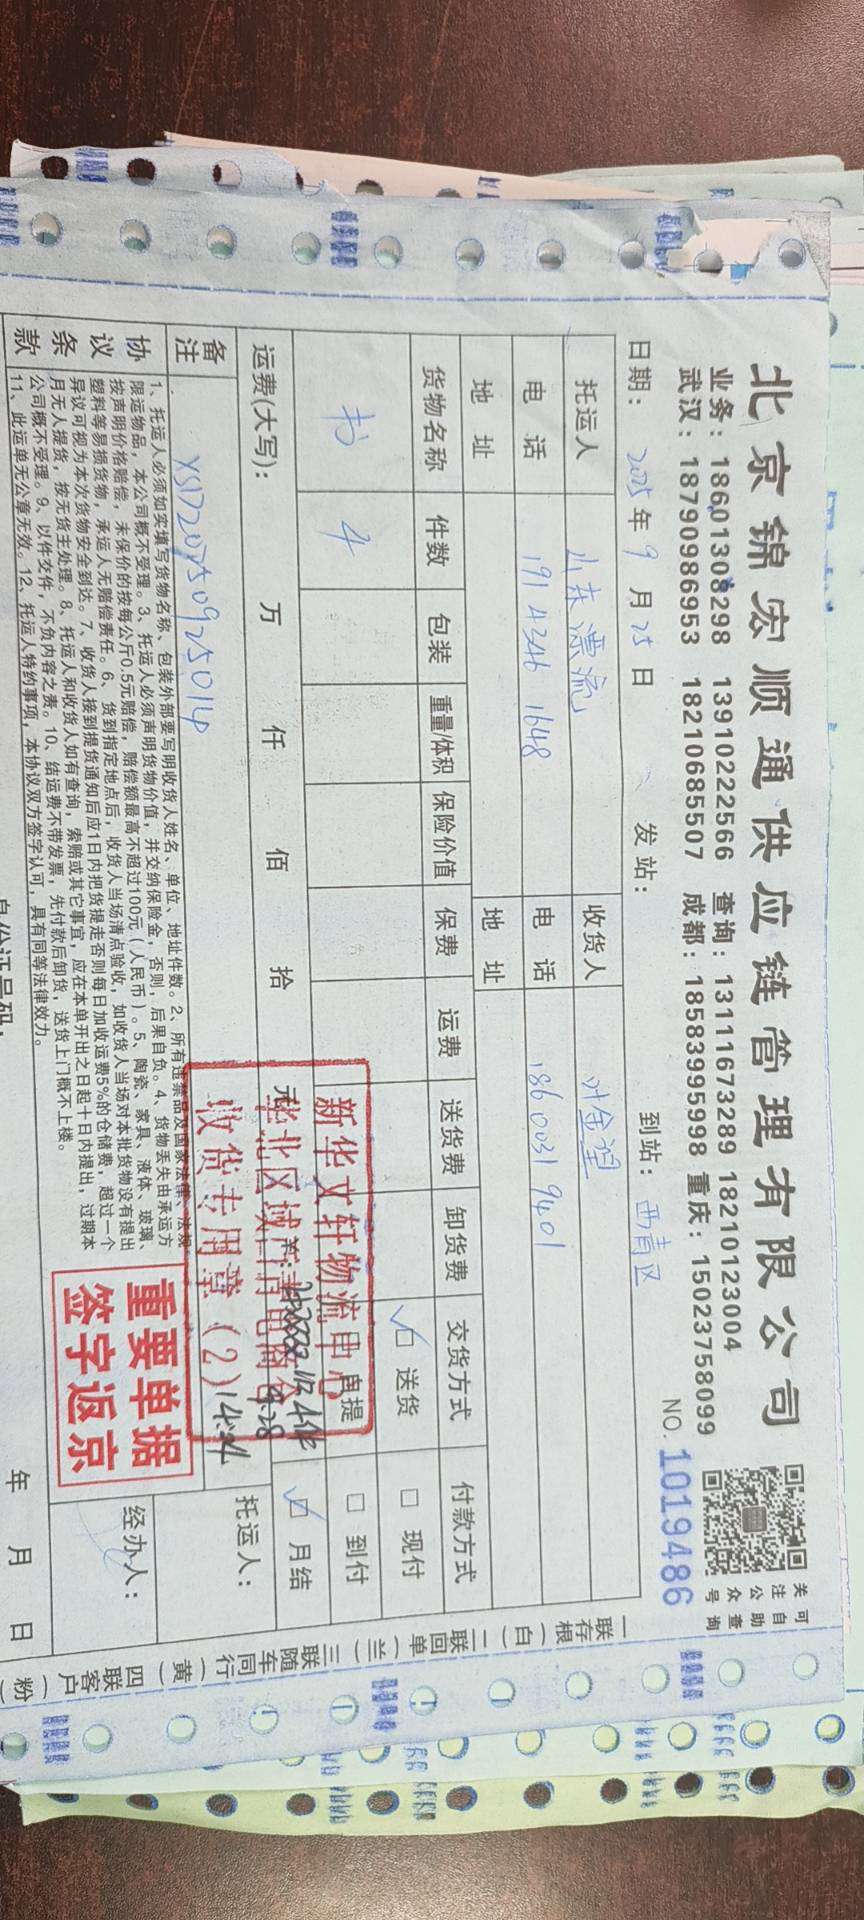 北京锦宏顺通供应链管理有限公司
可自助查询
关注公众号
业务：18601308298 13910222566 查询：13111673289 18210123004
武汉：18790986953 18210685507 成都：18583995998 重庆：15023758099
NO. 1019486
日期：2025年9月25日 发站： 到站：西青区
托运人 山东漂流 收货人
电话 191 4346 1648 电话 186 0031 9401
地址 地址
货物名称 件数 包装 重量/体积 保险价值 保费 运费 送货费 卸货费 交货方式 付款方式
书 4
☑送货 □现付
自提 □到付
☑月结
运费(大写)： 万 仟 佰 拾 元
备注 XSD20250925014
托运人：
新华文轩物流中心
华北区域
收货专用章（2）
9.28
14:24
协议条款
1、托运人必须如实填写货物名称、包装外部要写明收货人姓名、单位、地址件数。2、所有违禁品及国家法律、法规
限运物品，本公司概不受理。3、托运人必须声明货物价值，并交纳保险金，否则，后果自负。4、货物丢失由承运方
按声明价格赔偿，未保价的按每公斤0.5元赔偿，赔偿额最高不超过100元（人民币）。5、陶瓷、家具、液体、玻璃、
塑料等易损货物，承运人无赔偿责任。6、货到指定地点后，收货人当场清点验收，如收货人当场对本批货物没有提出
异议可视为本次货物安全到达。7、收货人接到提货通知后应1日内把货提走否则每日加收运费5%的仓储费，超过一个
月无人提货，按无货主处理。8、托运人和收货人如有查询，索赔或其它事宜，应在本单开出之日起十日内提出，过期本
公司概不受理。9、以件交件，不负内容之责。10、结运费不带发票，先付款后卸货，送货上门概不上楼。
11、此运单无公章无效。12、托运人特约事项，本协议双方签字认可，具有同等法律效力。
重要单据
签字返京
经办人：
身份证号码：
年 月 日
一联存根（白） 二联回单（兰） 三联随车同行（黄） 四联客户（粉）